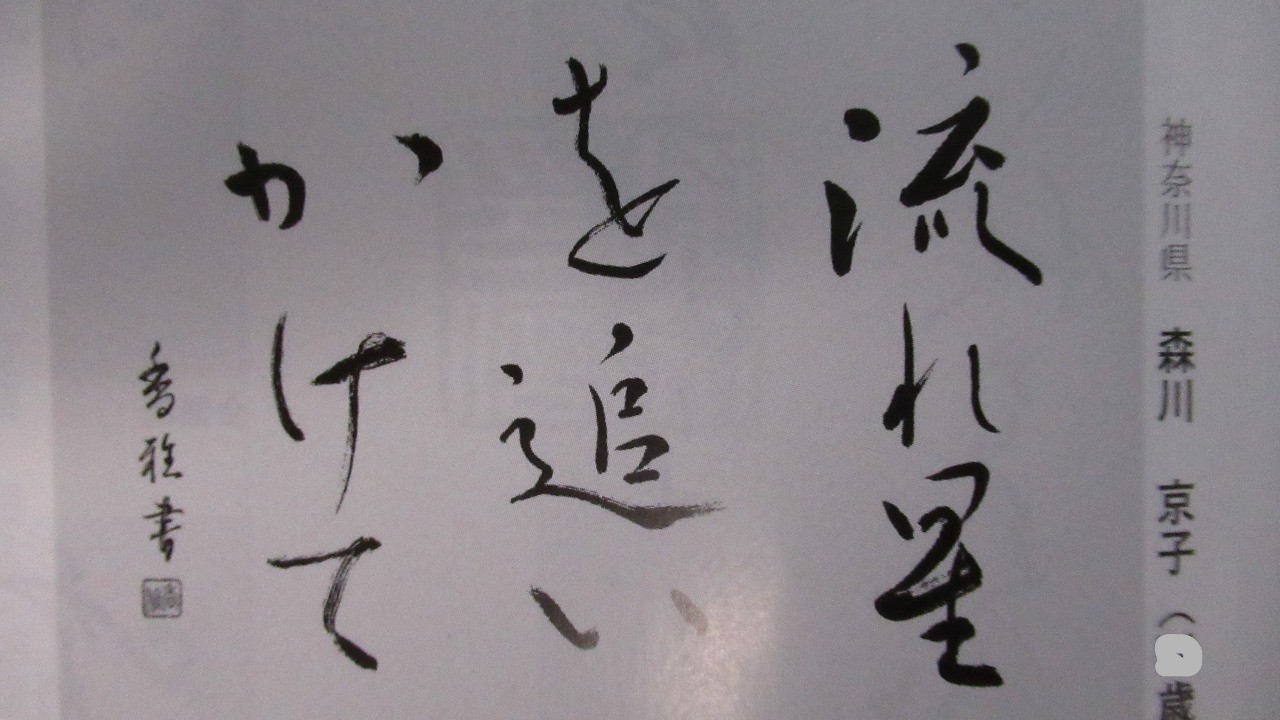 神奈川県 森川 京子 ( 歳
流れ星
を追い
かけて
香雅書